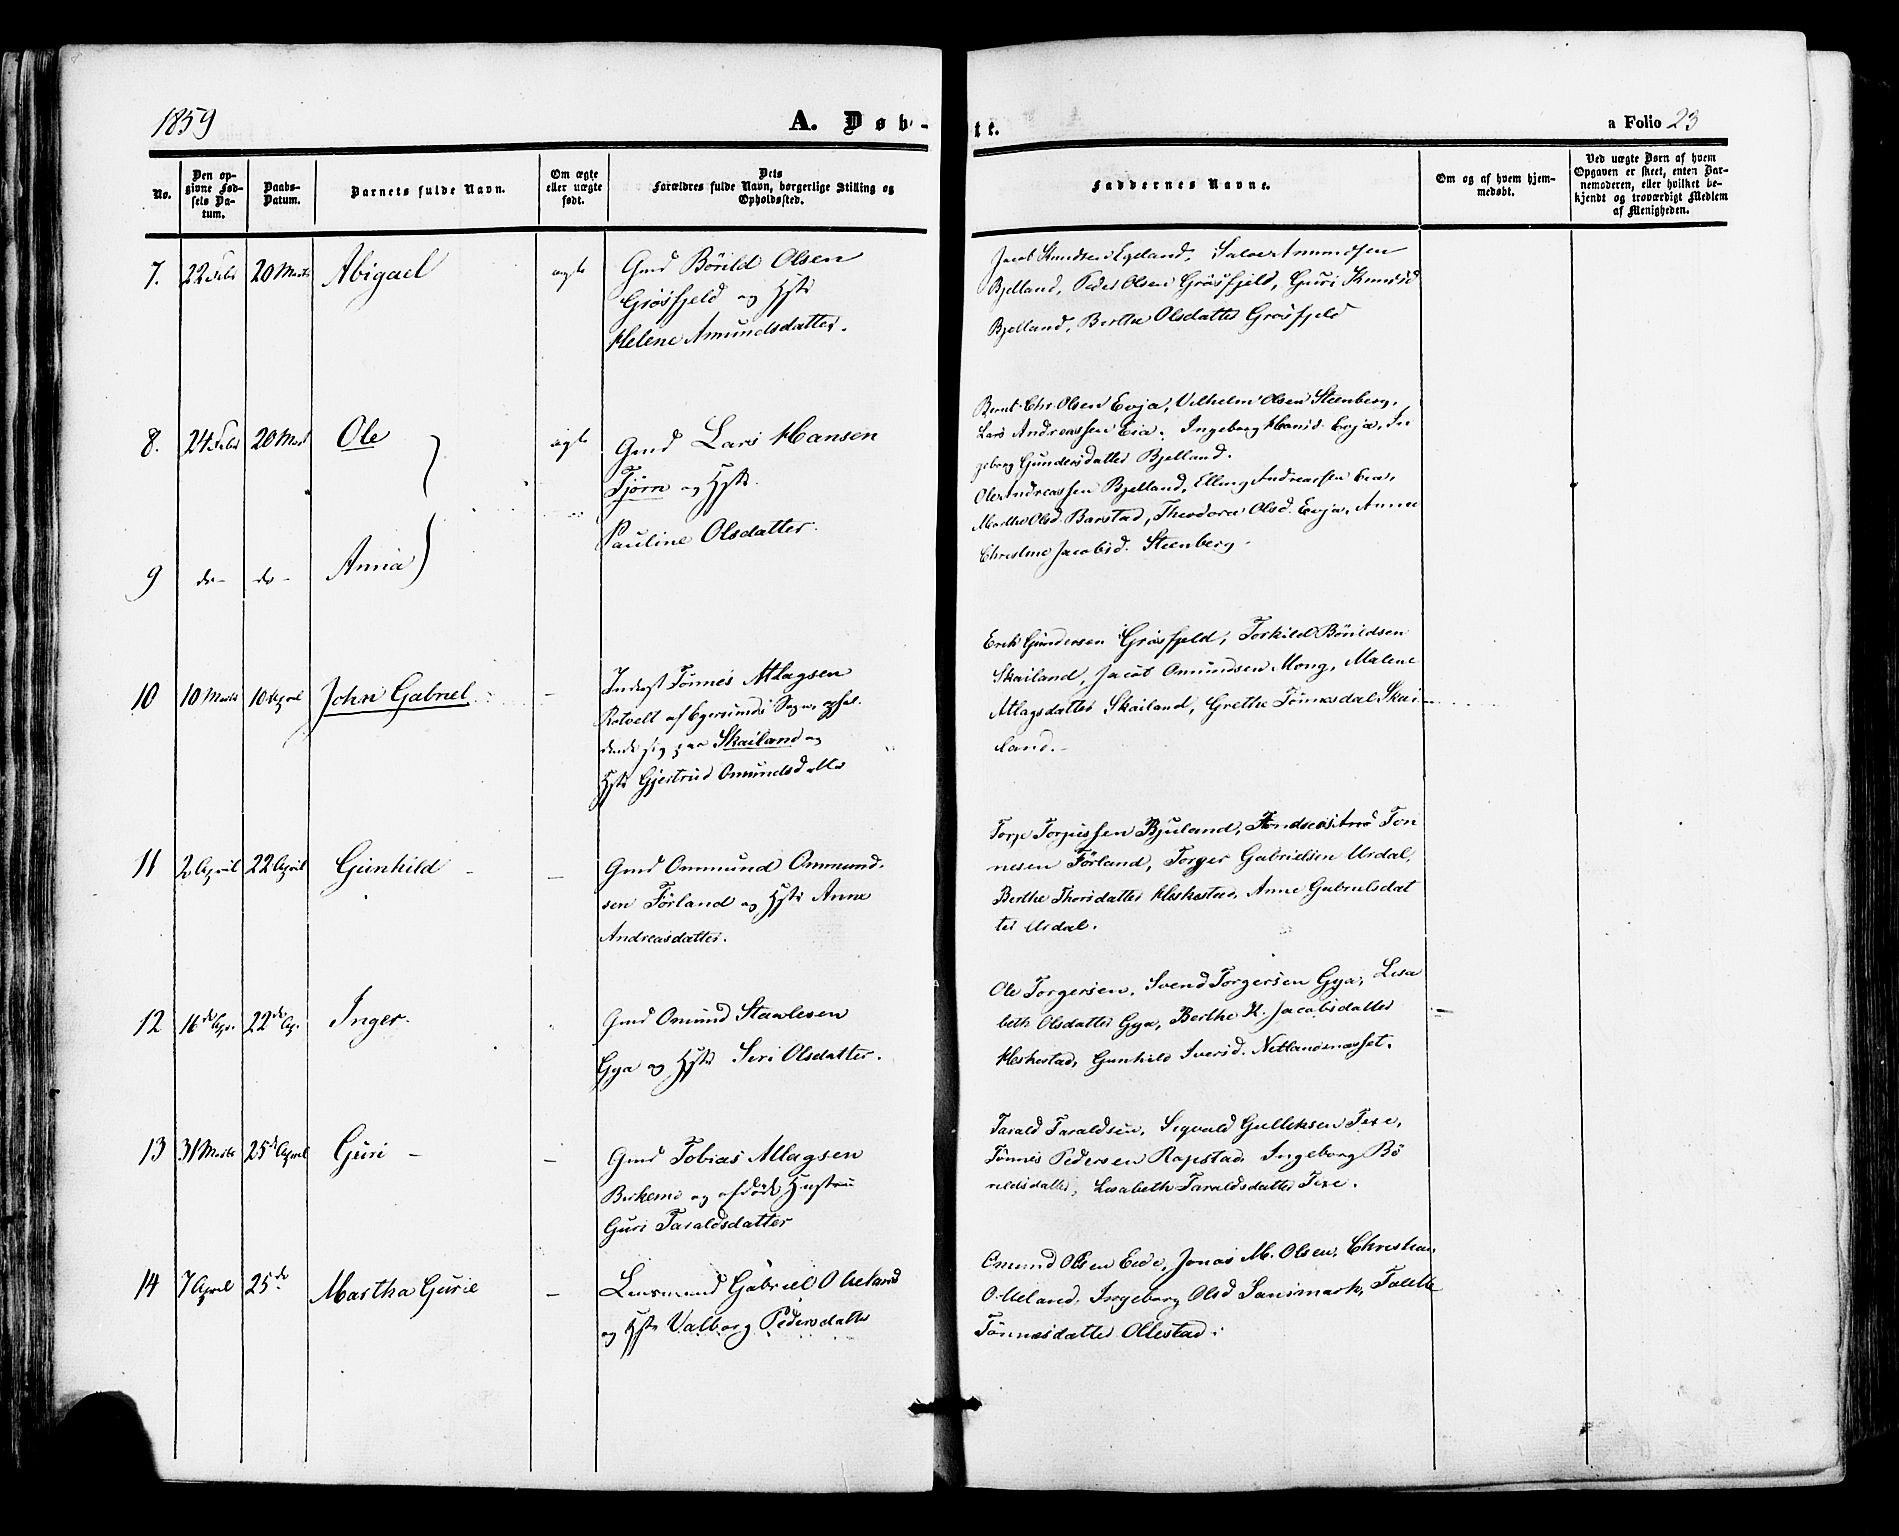 1859
A. Døb-
te.
a Folio 23
No.
Den op-
givne Fød-
sels Da-
tum.
Daabs-
Datum.
Barnets fulde Navn.
Om ægte
eller uægte
født.
Dets
Forældres fulde Navn, borgerlige Stilling og
Opholdssted.
Faddernes Navne.
Om og af hvem hjem-
medøbt.
Ved uægte Børn af hvem
Opgaven er skeet, enten Bar-
nemoderen, eller hvilket be-
kjendt og troværdigt Medlem
af Menigheden.
7. 22 Febr 20 Marts Abigael ægte
Gmd Børild Olsen
Grøsfjeld og Hstr
Helene Amundsdatter.
Jacob Knudsen Egeland, Salve Amundsen
Bjelland, Peder Olsen Grøsfjeld, Guri Knudsd
Bjelland, Berthe Olsdatter Grøsfjeld
8. 24 Febr 20 Mart Ole ægte
Gmd Lars Hansen
Tjørn og Hstr.
Pauline Olsdatter.
Bernt Chr. Olsen Evja, Vilhelm Olsen Steenberg,
Lars Andreassen Eia. Ingeborg Hansd. Evja, In
geborg Gundersdatter Bjelland.
Ole Andreassen Bjelland, Elling Andreassen Eia,
Marthe Olsd. Barstad, Theodora Olsd. Evja, Anne
Christine Jacobsd. Steenberg.
9 do- do- Anna
10 10 Marts 10 April John Gabriel -
Inderst Tønnes Atlagsen
Rotvelt af Egersunds Sogn, ophol-
dende sig paa Skailand og
Hstr Gjertrud Omundsdatter
Erik Gundersen Grøsfjeld, Torkild Børildsen
Skailand, Jacob Omundsen Mong, Malene
Atlagsdatter Skailand, Grethe Tønnesdat Skai-
land.-
11 2 April 22 April Gunhild -
Gmd Ommund Ommund-
sen Førland og Hstr Anne
Andreasdatter.
Torje Torjussen Bjuland, Tøn
nesen Førland, Torger Gabrielsen Urdal,
Berthe Thorsdatter Heskestad, Anne Gabrielsdat
ter Urdal.
12 16de Apr. 22de Ap. Inger.
Gmd Omund Staalesen
Gya og Hstr Siri Olsdatter.
Ole Torgersen, Svend Torgersen Gya, Lisa
beth Olsdatter Gya, Berthe K. Jacobsdatter
Heskestad, Gunhild Iversd. Netlandsnæsset.
13 31 Marts 25de April Guri - -
Gmd Tobias Atlagsen
Birkemo og afdøde Hustru
Guri Taraldsdatter
Tarald Taraldsen, Sigvald Gulleksen Texe,
Tønnes Pedersen Rapstad, Ingeborg Bø
rildsdatter, Lisabeth Taraldsdatter Texe.
14 7 April 25de Martha Gurie -
Lensmand Gabriel O Ueland
og Hstr Valborg Pedersdatter
Omund Olsen Eide, Jonas M. Olsen, Christian
O. Ueland, Ingeborg Olsd Sanimark, Tolette
Tønnesdatter Ollestad.